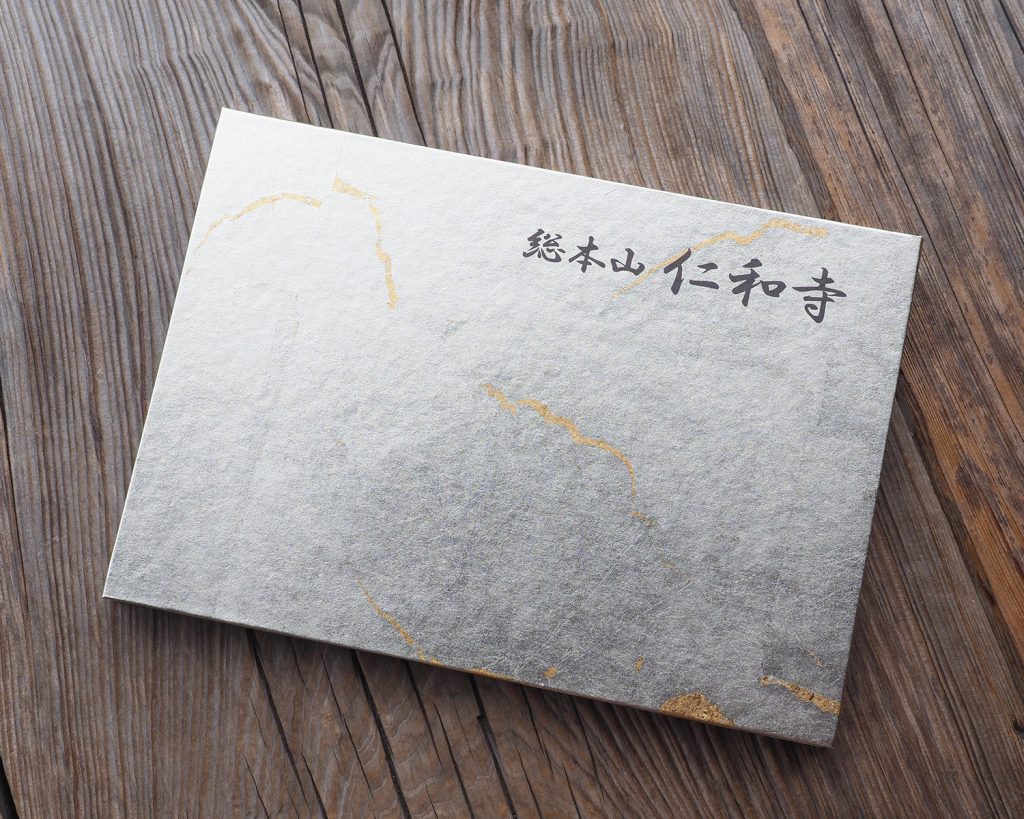 総本山 仁和寺